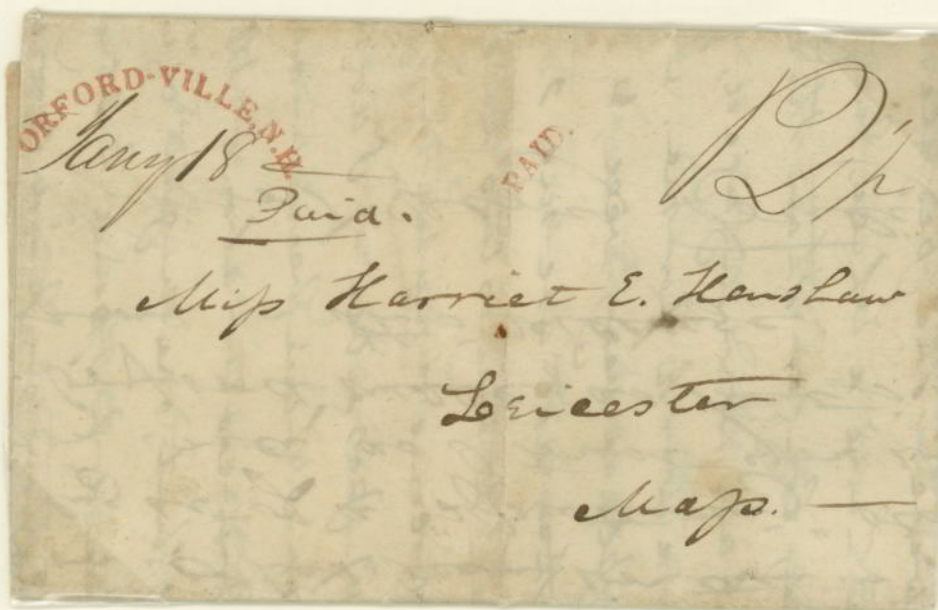 ORFORD-VILLE, N.H.
Jany 18
PAID.
Paid.
Miss Harriet E. Henshaw
Leicester
Mass.